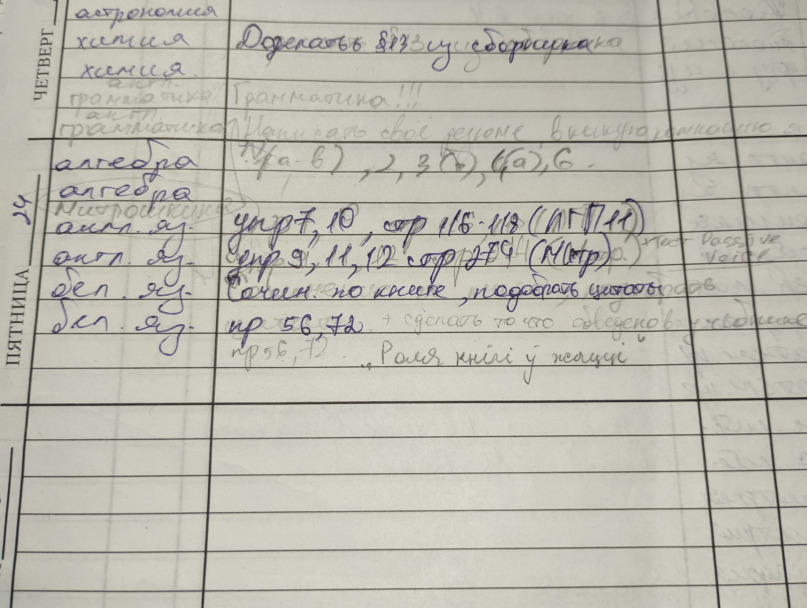 ЧЕТВЕРГ
астрономия
химия Доделать §13 из сборника
химия
англ.
грамматика Грамматика!!!
англ.
грамматика Написать своё резюме
алгебра 1(а-в), 2, 3(б), 4(а), 6.
ПЯТНИЦА 24
алгебра
англ. яз. упр 7, 10, стр 116-118 (ИГП11)
англ. яз. упр 9, 11, 12 стр 274 тест Passive Voice
бел. яз. Сочин. по книге, подобрать цитаты
бел. яз. пр 56, 72 + сделать то что обведено в учебнике
пр 56, 72 "Роля кнігі ў жыцці"